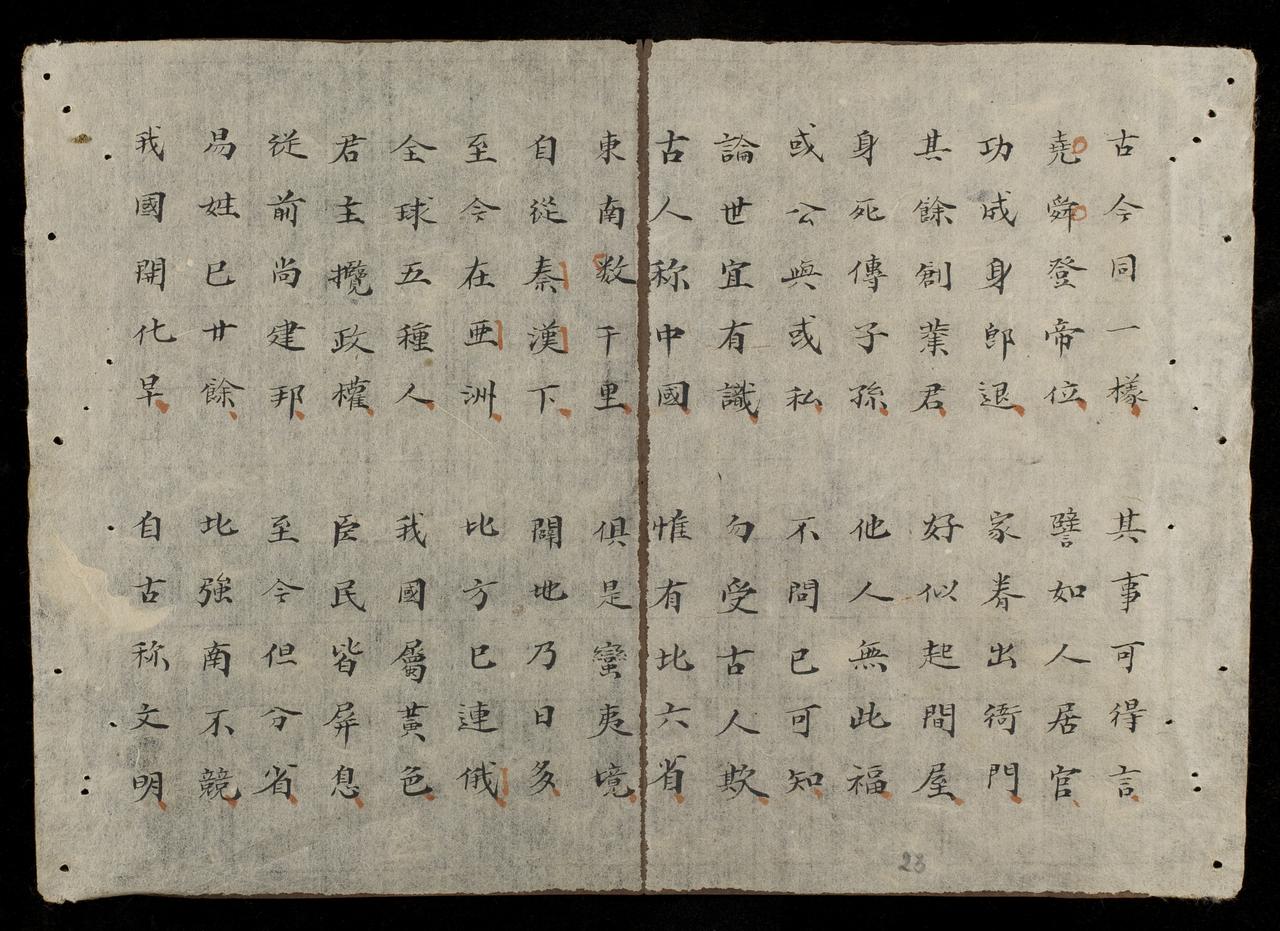 古今同一樣 其事可得言
堯舜登帝位 譬如人居官
功成身即退 家眷出衙門
其餘創業君 好似起間屋
身死傳子孫 他人無此福
或公與或私 不問已可知
論世宜有識 勿受古人欺
古人称中國 惟有北六省
東南数千里 俱是蠻夷境
自從秦漢下 闢地乃日多
至今在亜洲 比方已連俄
全球五種人 我國屬黃色
君主攬政權 臣民皆屏息
從前尚建邦 至今但分省
易姓已廿餘 北強南不競
我國開化早 自古称文明
23